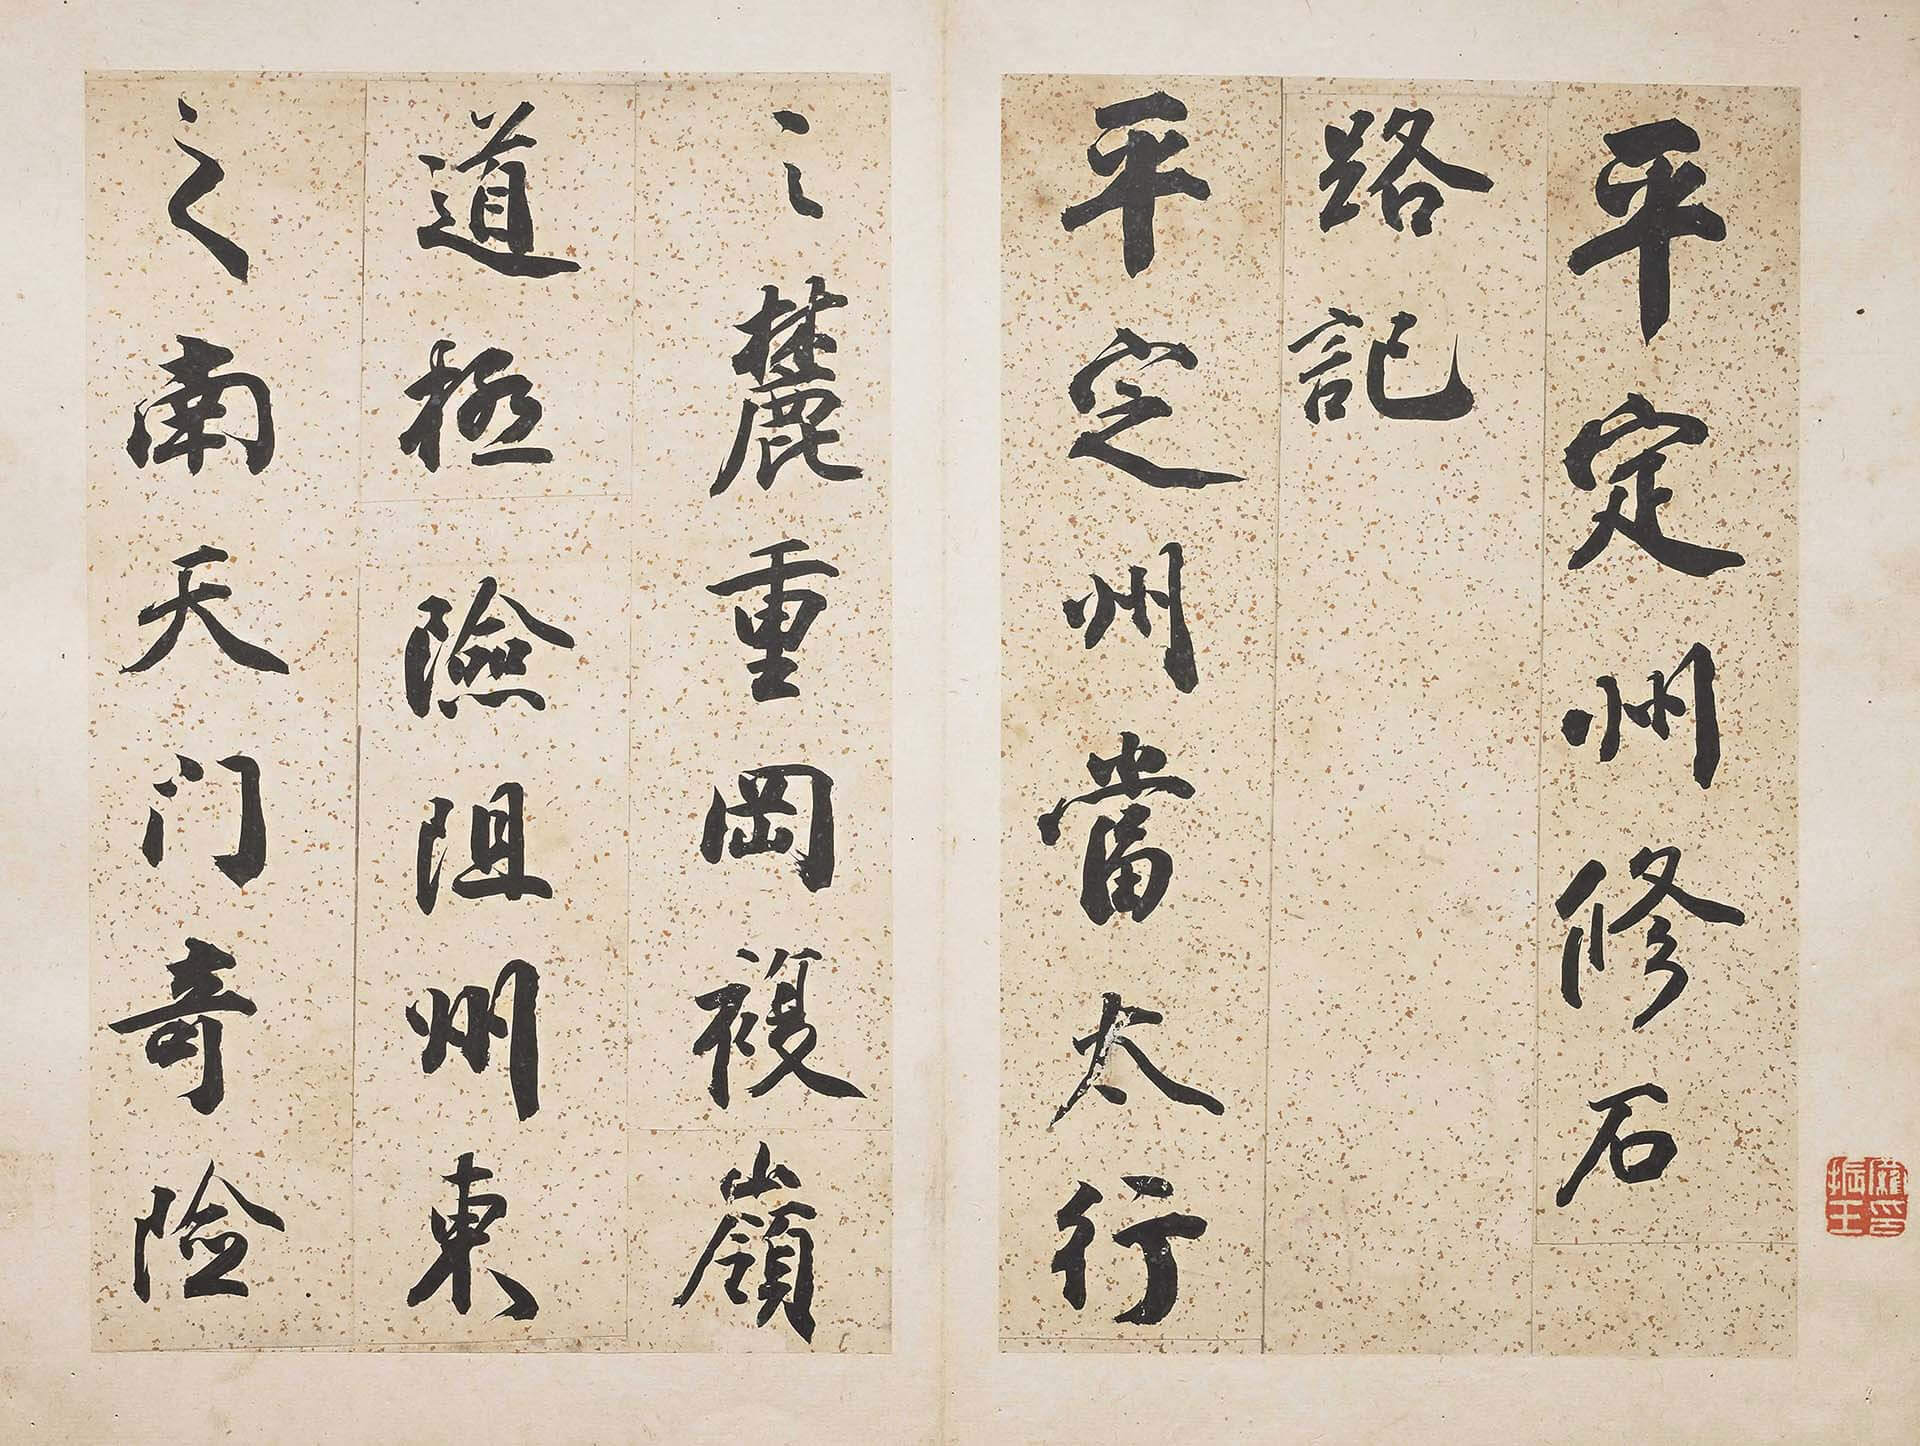 平定州修石
路記
平定州當太行
之麓重岡複嶺
道極險阻州東
之南天门奇險